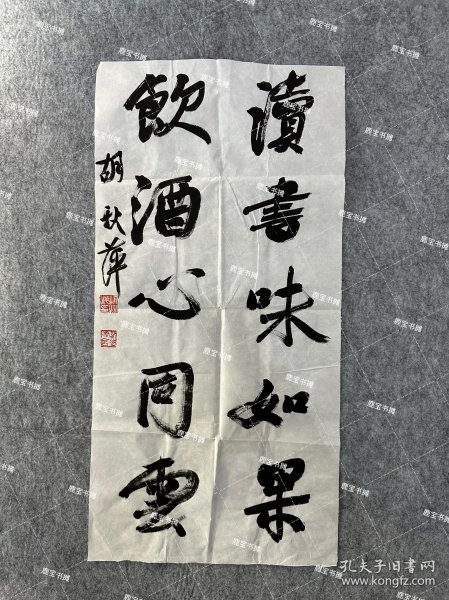 讀書味如果
飲酒心同雲
胡秋萍
鹿宝书摊
孔夫子旧书网
www.kongfz.com